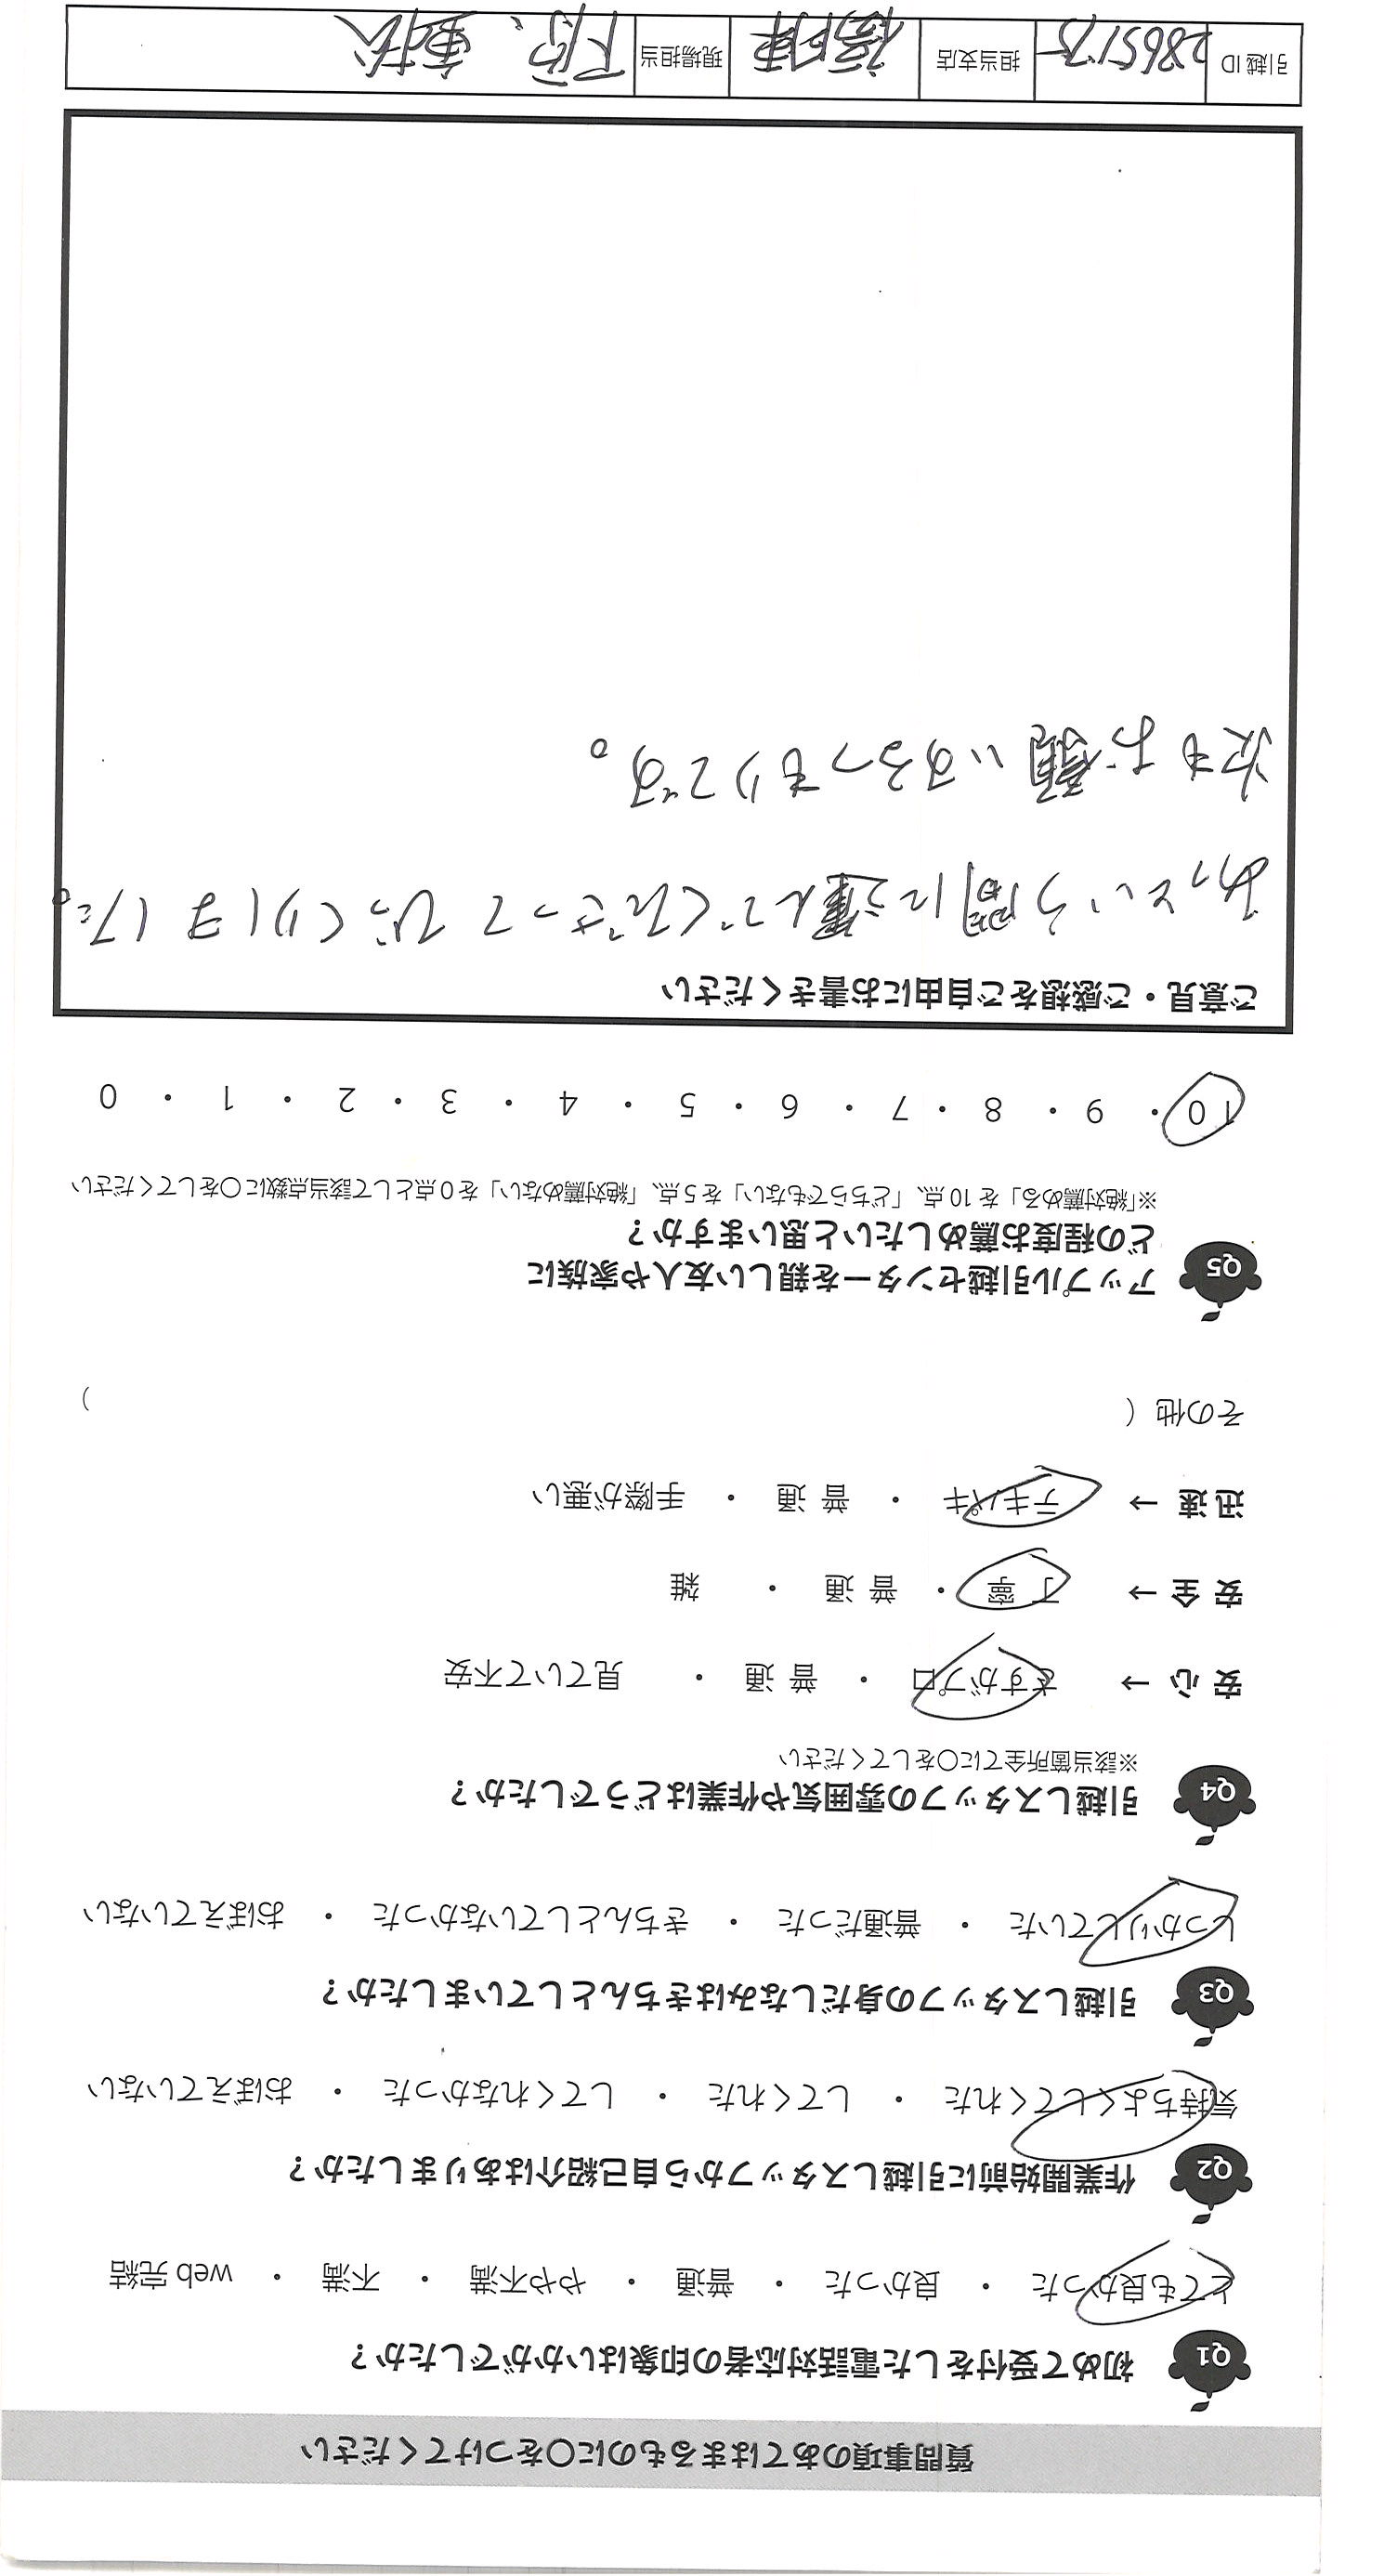 質問事項のあてはまるものに〇をつけてください
Q1 初めて受付をした電話対応者の印象はいかがでしたか？
とても良かった ・ 良かった ・ 普通 ・ やや不満 ・ 不満 ・ web 完結
Q2 作業開始前に引越しスタッフから自己紹介はありましたか？
気持ちよくしてくれた ・ してくれた ・ してくれなかった ・ おぼえていない
Q3 引越しスタッフの身だしなみはきちんとしていましたか？
しっかりしていた ・ 普通だった ・ きちんとしていなかった ・ おぼえていない
Q4 引越しスタッフの雰囲気や作業はどうでしたか？
※該当箇所全てに〇をしてください
安 心 → さすがプロ ・ 普 通 ・ 見ていて不安
安 全 → 丁 寧 ・ 普 通 ・ 雑
迅 速 → テキパキ ・ 普 通 ・ 手際が悪い
その他 （ ）
Q5 アップル引越センターを親しい友人や家族に
どの程度お薦めしたいと思いますか？
※「絶対薦める」を 10 点、「どちらでもない」を 5 点、「絶対薦めない」を 0 点として該当点数に〇をしてください
10 ・ 9 ・ 8 ・ 7 ・ 6 ・ 5 ・ 4 ・ 3 ・ 2 ・ 1 ・ 0
ご意見・ご感想をご自由にお書きください
あっという間に運んでくださってびっくりしました。
次もお願いするつもりです。
引越 ID 2865175 担当支店 現場担当